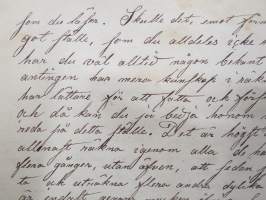 som du läser. Skulle det, emot förm
got ställe, som du alldeles icke
har du wäl alltid någon bekant
antingen har mera kunskap i räkn
har lättare för att fatta och förs
och då kan du ju bedja honom
reda på detta ställe. Det är högst
allenast räkna igenom alla de
flera gånger, utan äfven, att sedan
ta och uträkna flera andra dylika